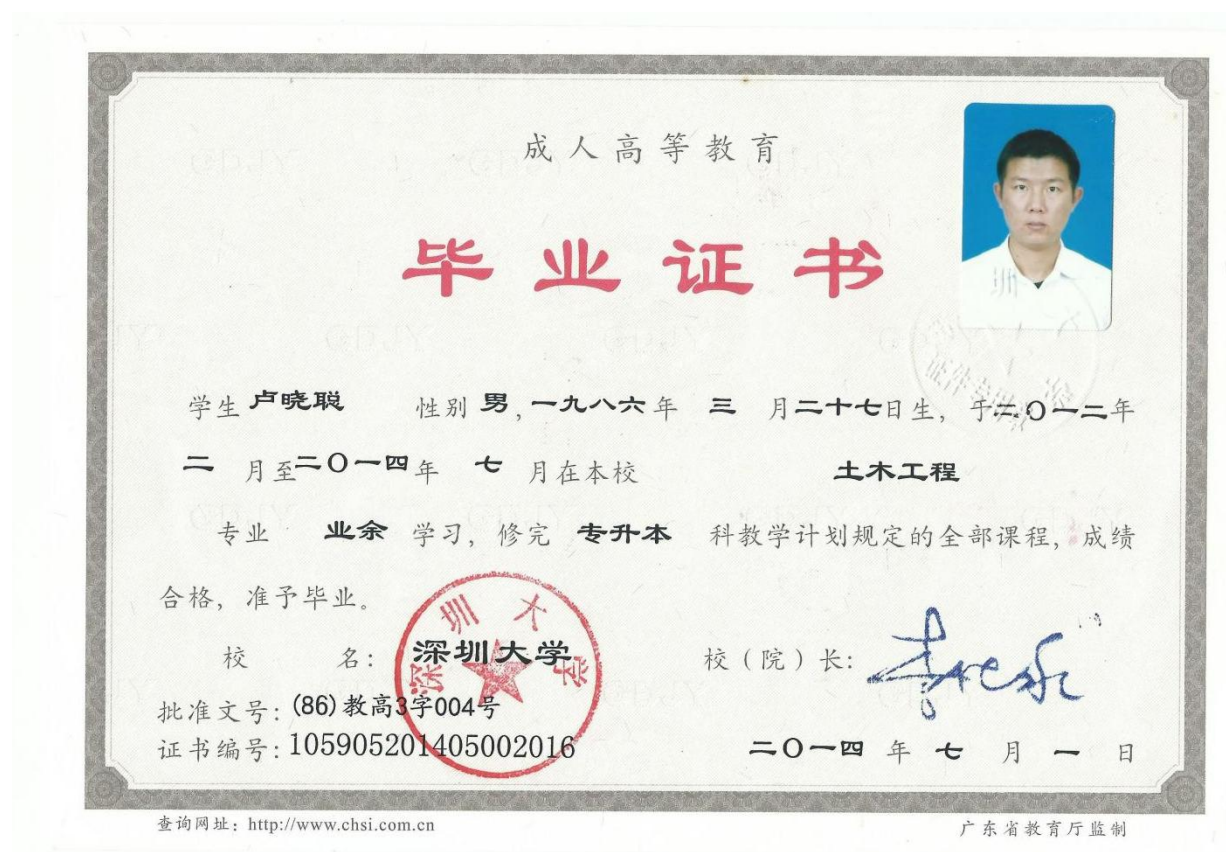 成人高等教育
毕业证书
学生 卢晓聪 性别 男, 一九八六年 三 月二十七日生, 于二〇一二年
二 月至二〇一四年 七 月在本校 土木工程
专业 业余 学习, 修完 专升本 科教学计划规定的全部课程, 成绩
合格, 准予毕业。
校 名: 深圳大学 校(院)长:
深圳大学
批准文号: (86)教高3字004号
证书编号: 105905201405002016 二〇一四 年 七 月 一 日
查询网址: http://www.chsi.com.cn 广东省教育厅监制